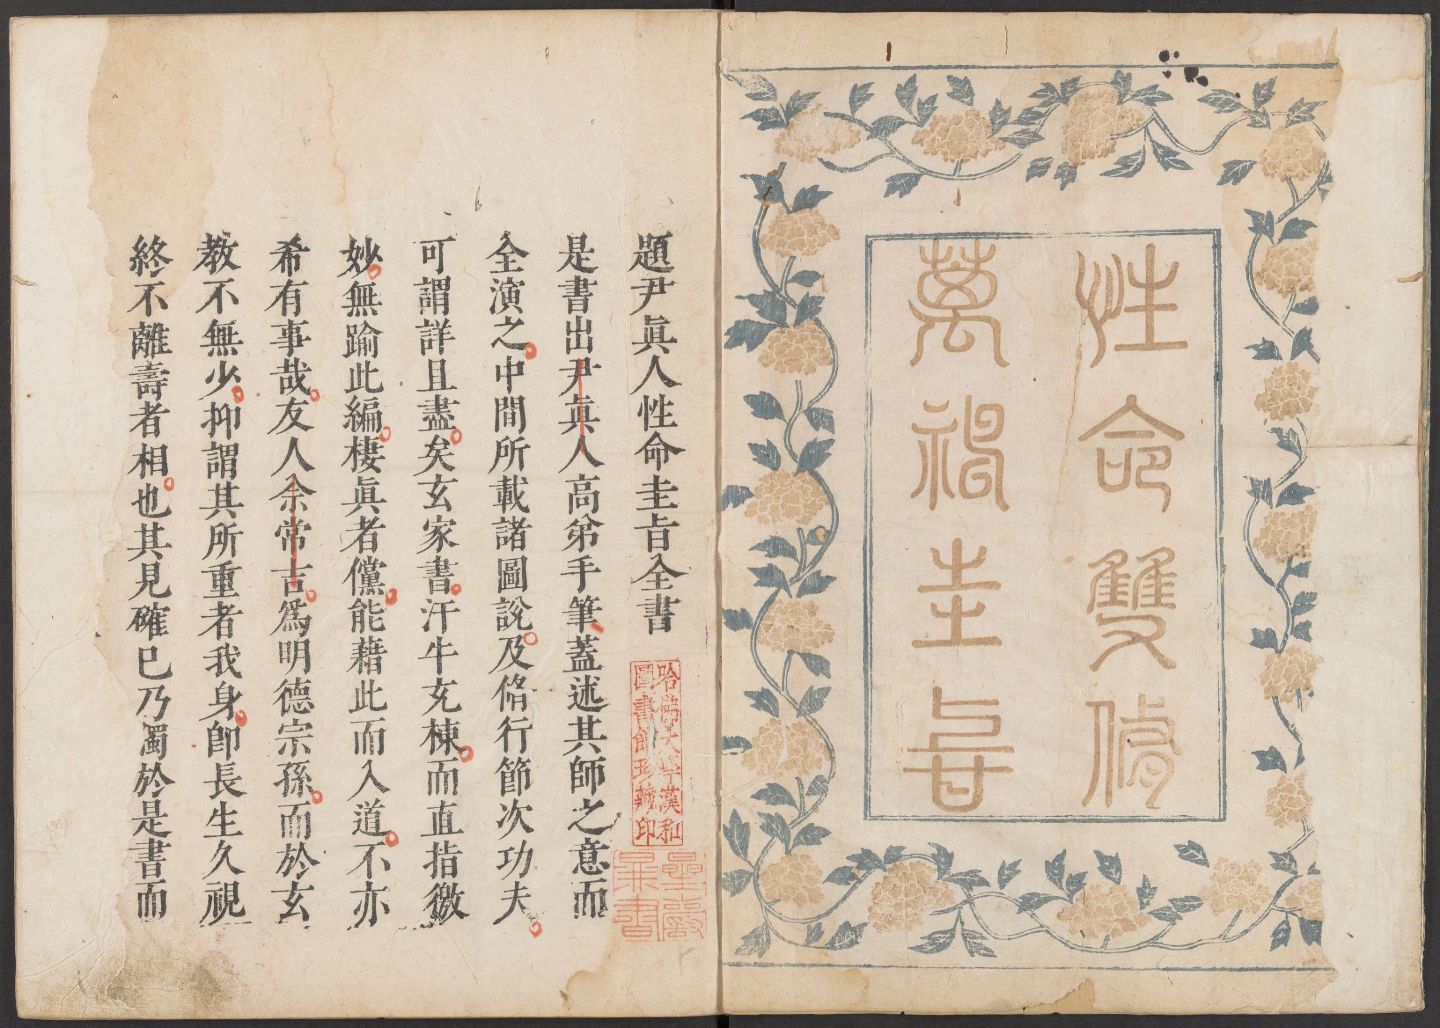 性命雙脩
萬神圭旨
題尹眞人性命圭旨全書
是書出尹眞人高弟手筆蓋述其師之意而
全演之中間所載諸圖說及脩行節次功夫
可謂詳且盡矣玄家書汗牛充棟而直指微
妙無踰此編棲眞者儻能藉此而入道不亦
希有事哉友人余常吉爲明德宗孫而於玄
教不無少抑謂其所重者我身卽長生久視
終不離壽者相也其見確已乃獨於是書而
哈佛大學漢和
圖書館珍藏印